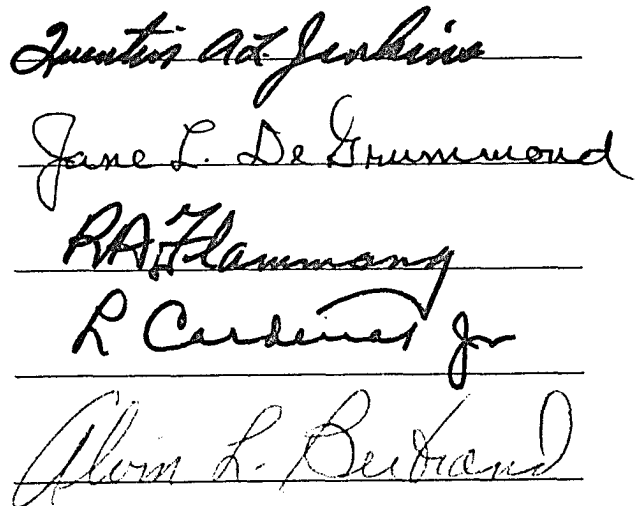 Quentin A.L. Jenkins
Jane L. De Grummond
R.A. Flammang
L Cardenas Jr
Alvin L. Bertrand